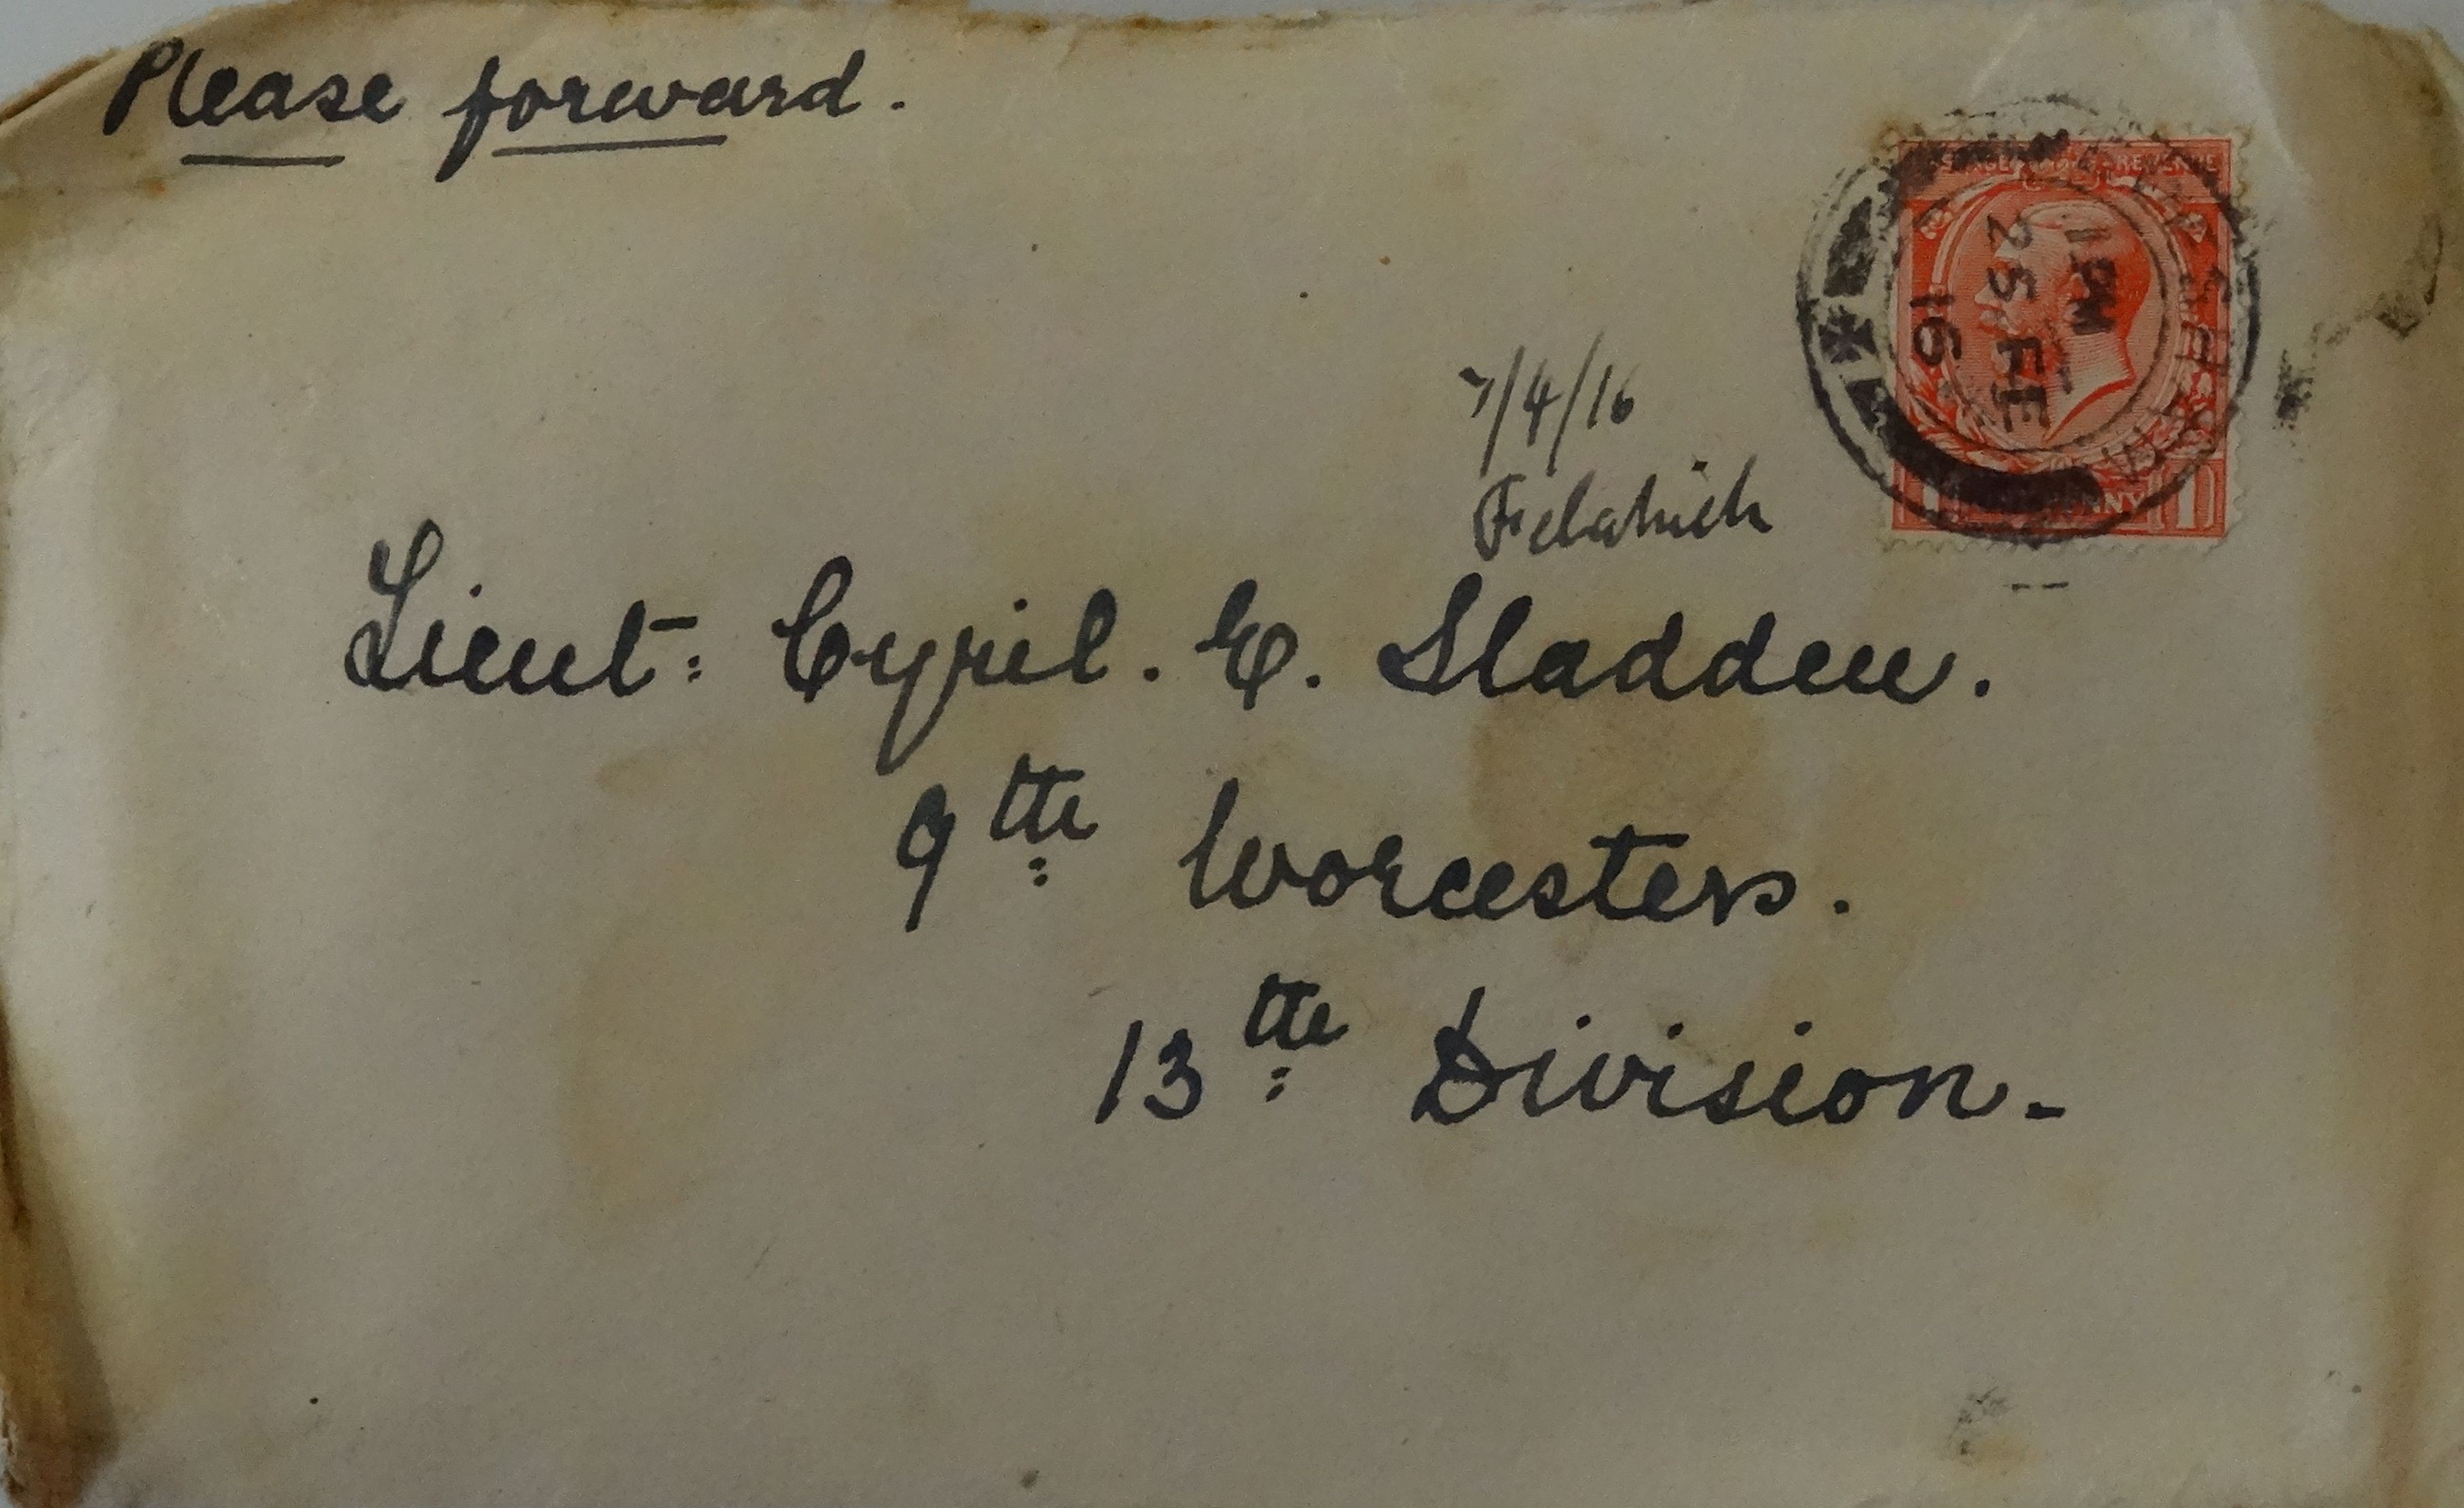 Please forward.
POSTAGE REVENUE
1 PM
25 FE
16
PENNY 1
7/4/16
Felahieh
Lieut: Cyril. E. Sladden.
9th Worcesters.
13th Division.